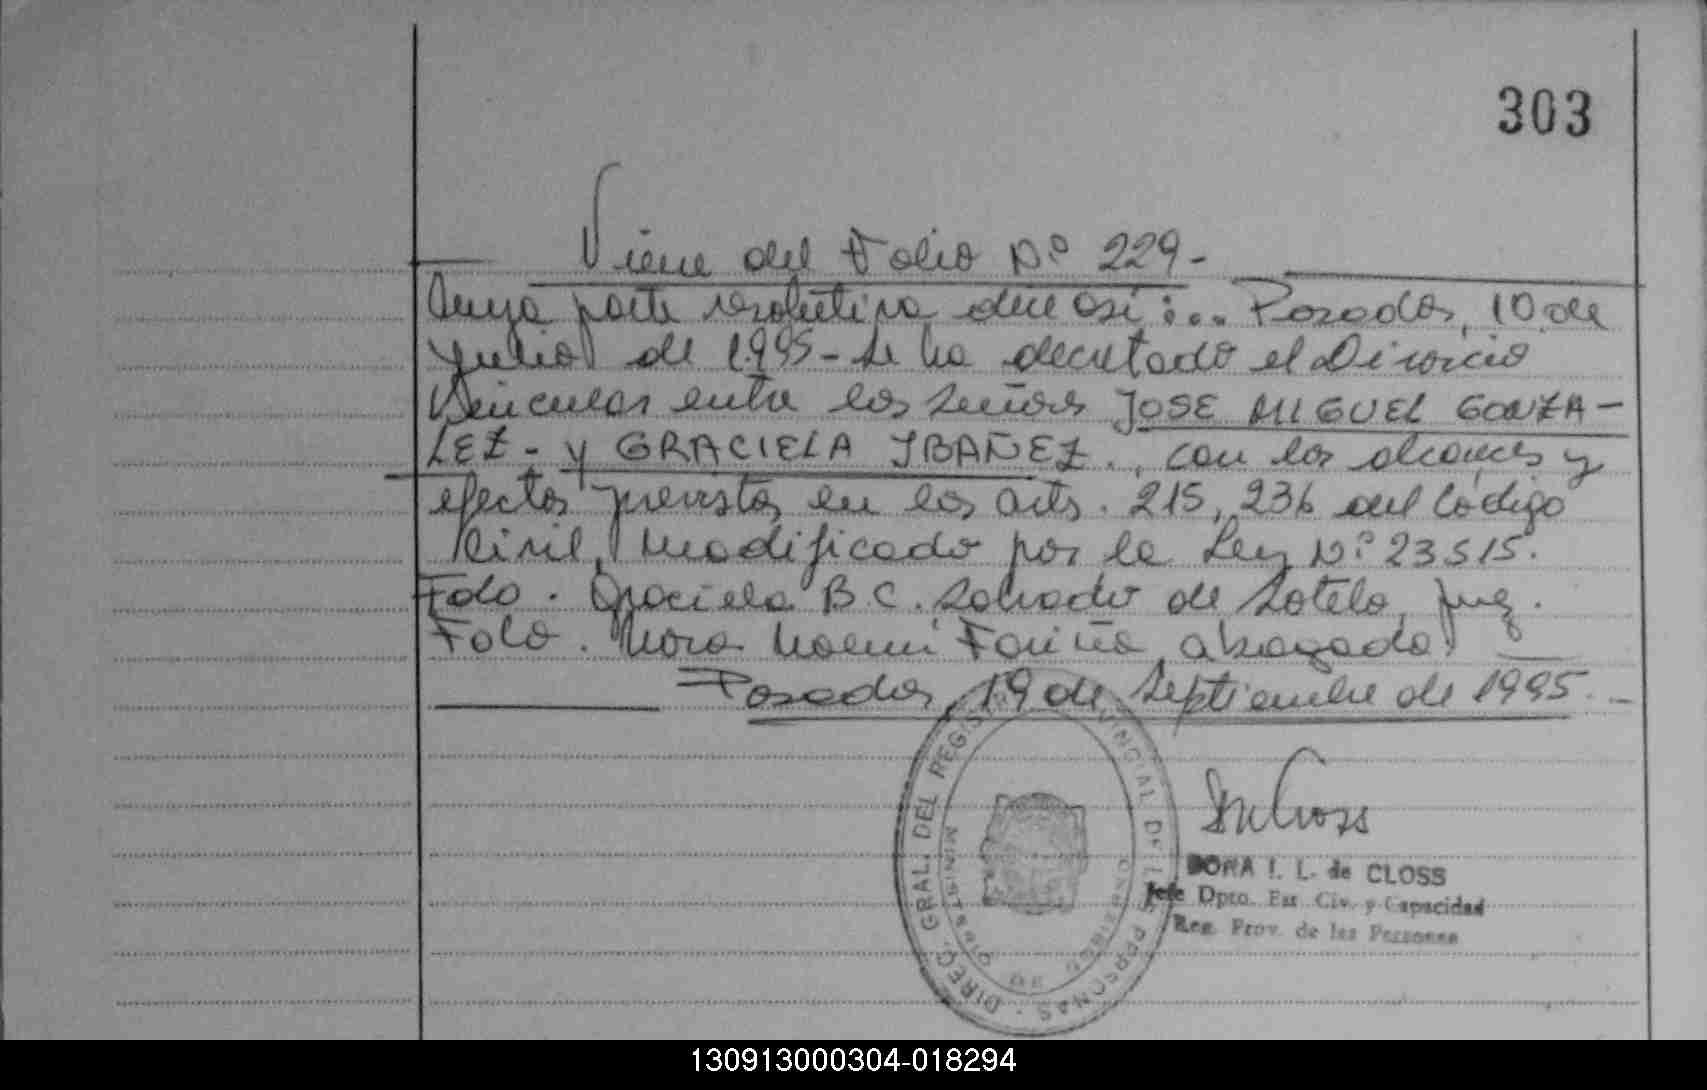 303
Viene del Folio Nº 229-
Cuya parte resolutiva dice así:... Posadas, 10 de
Julio de 1.995- Se ha decretado el Divorcio
Vincular entre los señores JOSE MIGUEL GONZA-
LEZ- y GRACIELA IBAÑEZ., con los alcances y
efectos previstos en los arts. 215, 236 del Código
Civil, modificado por la Ley Nº 23515.
Fdo. Graciela B C. Salvador de Sotelo, juez.
Fdo. Nora Noemi Fariña, abogada.
Posadas, 19 de Septiembre de 1995.-
DIREC. GRAL. DEL REGIST VINCIAL DE LAS PERSONAS
MINISTERIO DE GOBIERNO
DORA I. L. de CLOSS
Jefe Dpto. Est. Civ. y Capacidad
Reg. Prov. de las Personas
130913000304-018294